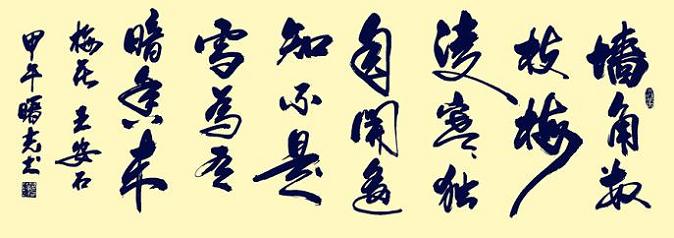 墙角数
枝梅
凌寒独
自開遥
知不是
雪為有
暗香来
梅花 王安石
甲午曙光书